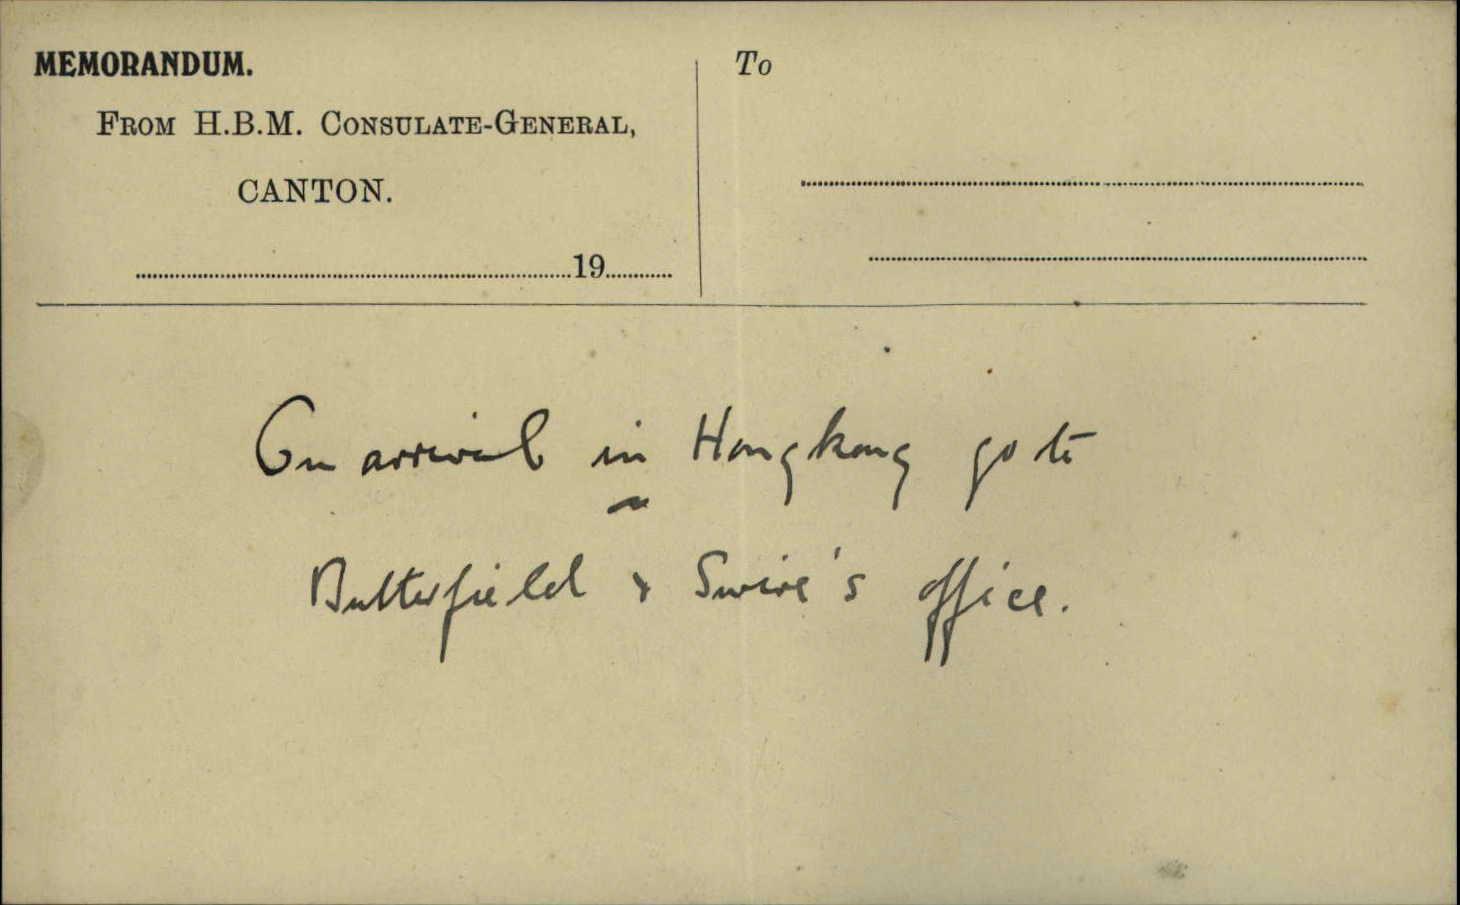 MEMORANDUM.
FROM H.B.M. CONSULATE-GENERAL,
CANTON.
19
To
On arrival in Hongkong go to
Butterfield & Swire's office.